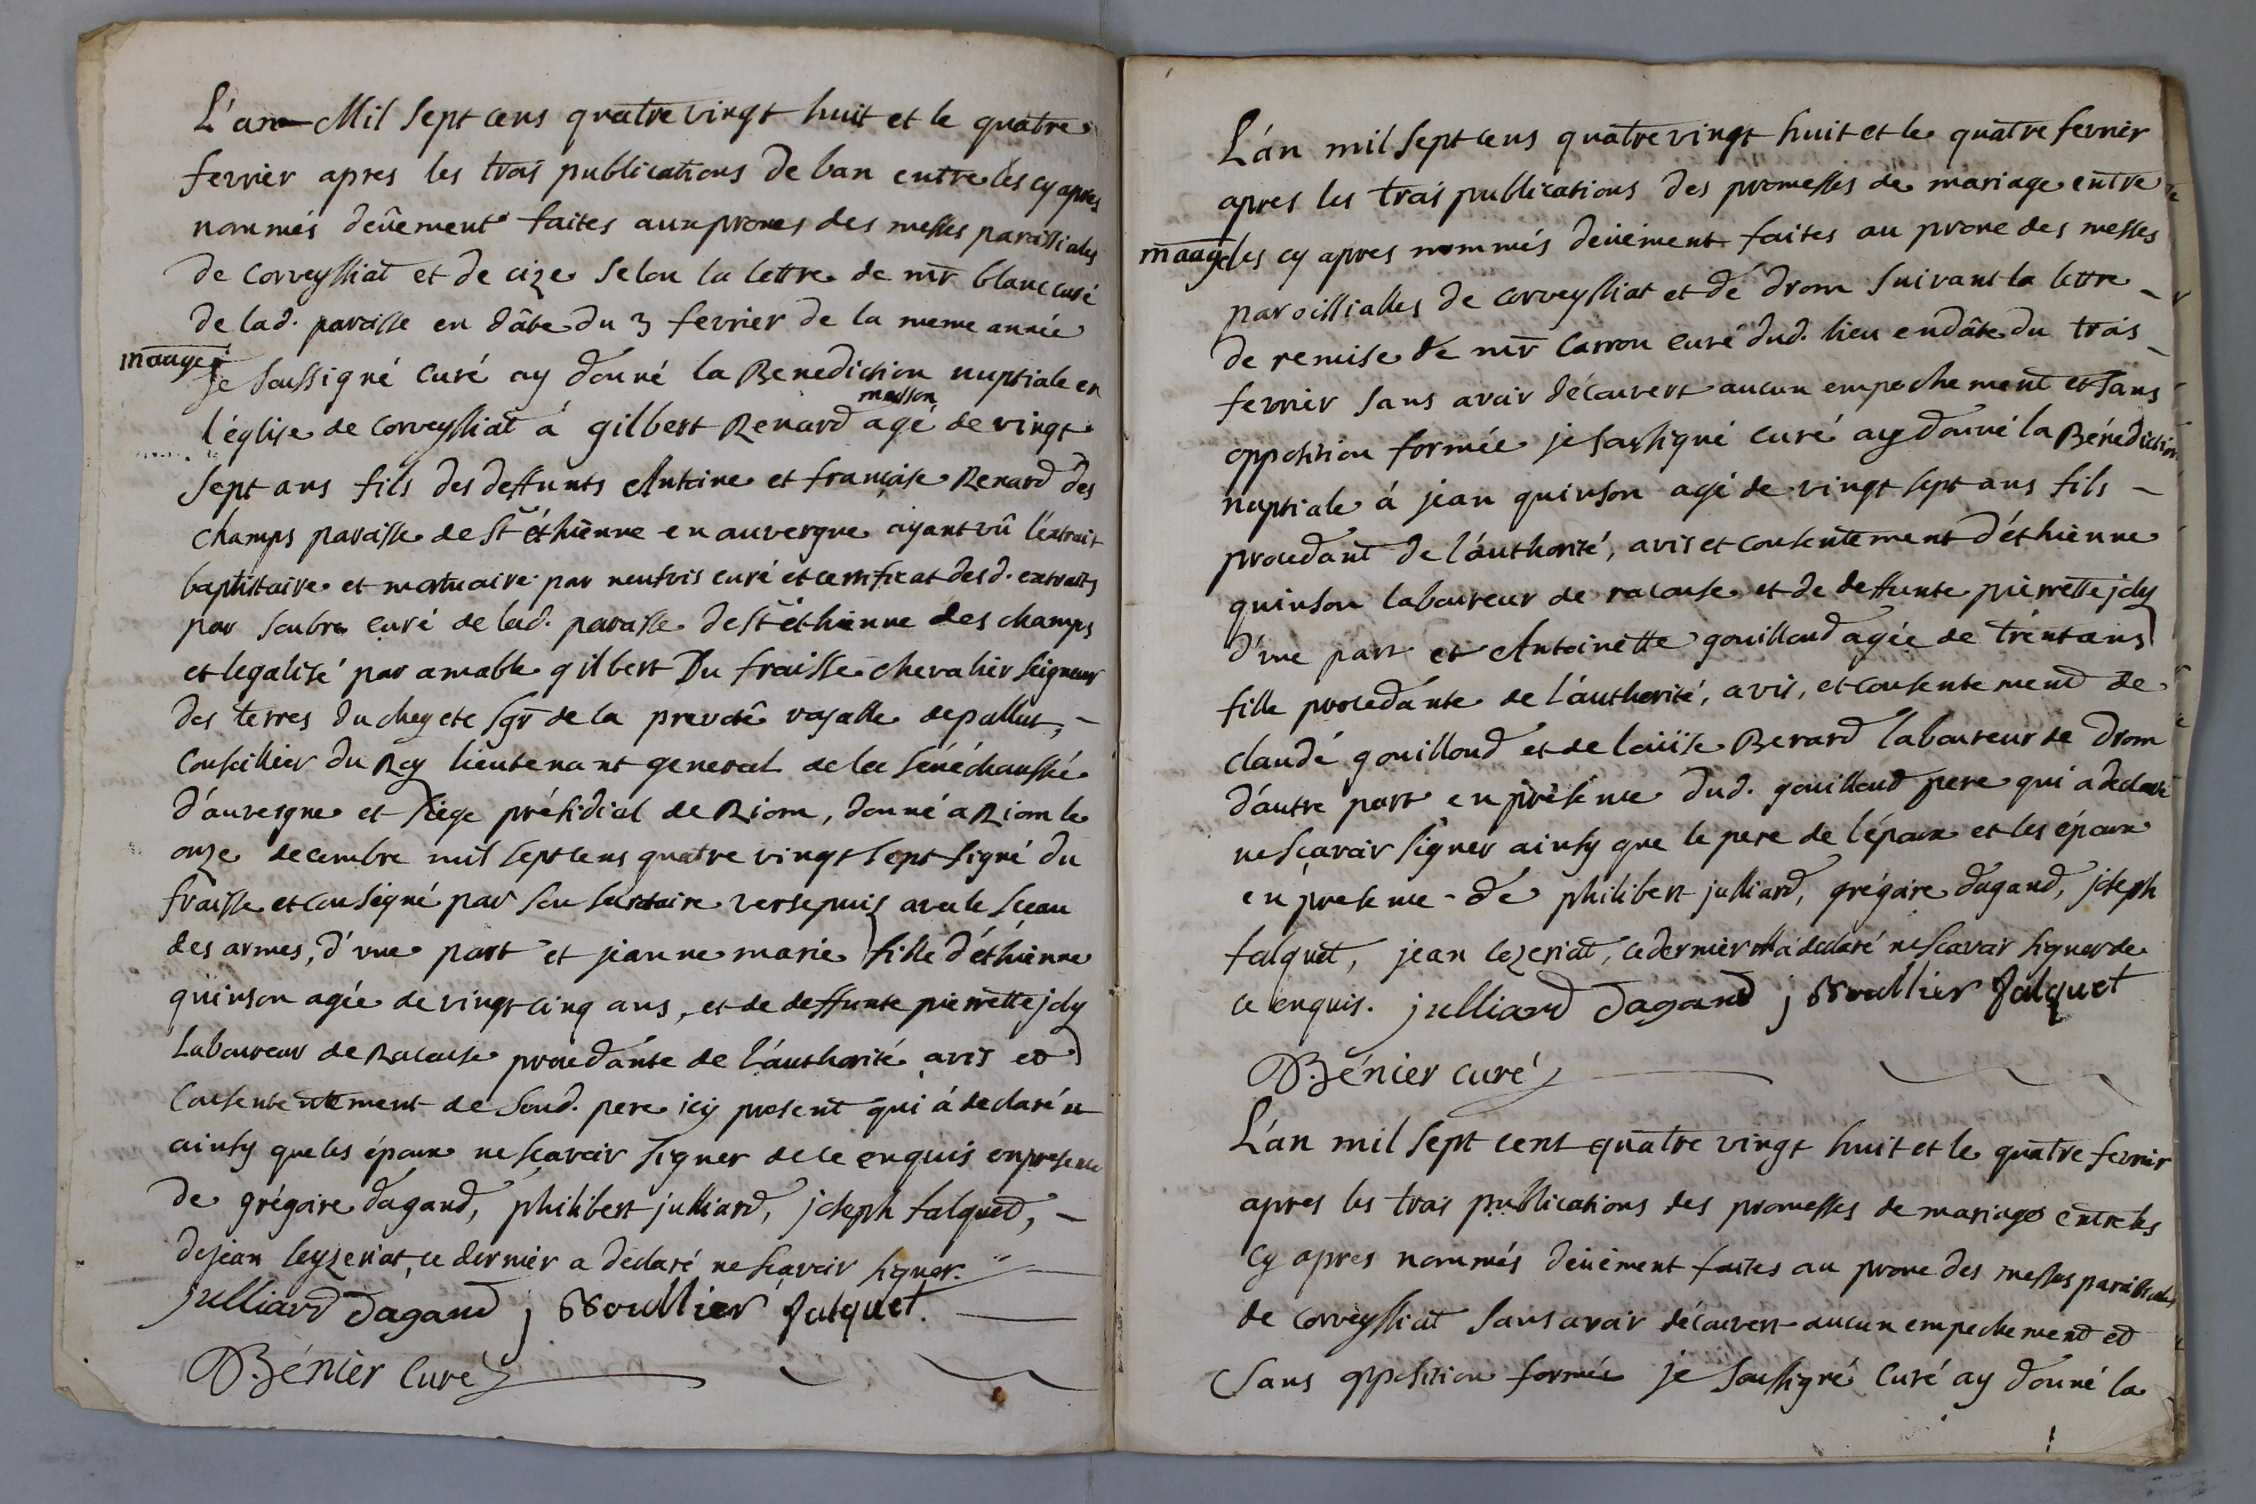 L'an Mil Sept cens quatre vingt huit et le quatre
fevrier apres les trois publications de ban entre les cy apres
nommés deüement faites aux prones des messes paroissiales
de Corveyssiat et de cize selon la lettre de mr blanc curé
de lad. paroisse en dâte du 3 fevrier de la meme année
mariage
Je soussigné curé ay donné la Benediction nuptiale en
masson
l'église de Corveyssiat á gilbert Renard agé de vingt
sept ans fils des deffunts Antoine et françoise Renard des
champs paroisse de St éthienne en auvergne ayant vû l'extrait
baptistaire et mortuaire par neufvis curé et certificat desd. extraits
par soubre curé de lad. paroisse de St éthienne des champs
et legalisé par amable gilbert Du fraisse chevalier seigneur
des terres du chey et sgr de la prevoté royalle de pallut, –
Conseillier du Roy lieutenant general de la sénéchaussée
d'auvergne et siége présidial de Riom, donné a Riom le
onze decembre mil sept cens quatre vingt sept signé du
fraisse et consigné par son secretaire versepuis avec le sceau
des armes, d'vne part et jeanne marie fille d'éthienne
quinson agée de vingt cinq ans, et de deffunte pierrette joly
Laboureur de Racouse procedante de l'áuthorité avis et
Consentement de sond. pere icy present qui á declaré
ainsy que les époux ne scavoir signer de ce enquis en presence
de grégoire dagand, philibert julliard, joseph falquet, –
de jean leyzeriat, ce dernier a declaré ne scavoir signer.
Julliard Dagand j Voullier falquet.
Bénier Curé
L'án mil sept cens quatre vingt huit et le quatre fevrier
apres les trois publications des promesses de mariage entre
mariage
les cy apres nommés deüement faites au prone des messes
paroissialles de Corveyssiat et de drom suivant la lettre –
de remise de mr Carron curé dud. lieu en dâte du trois –
fevrier sans avoir découvert aucun empechement et sans
opposition formée je soussigné curé ay donné la Bénédiction
nuptiale á jean quinson agé de vingt sept ans fils –
procedant de l'áuthorité, avis et consentement d'éthienne
quinson laboureur de racouse et de deffunte pierrette joly
d'vne part et Antoinette gouilloud agée de trente ans
fille procedante de l'áuthorité, avis, et consentement de
claude gouilloud et de loüise Berard laboureur de Drom
d'autre part en présence dud. gouilloud pere qui a declaré
ne scavoir signer ainsy que le pere de l'époux et les époux
en presence de philibert julliard, grégoire dagand, joseph
falquet, jean lezeriat, ce dernier á declaré ne scavoir signer de
ce enquis. Julliard Dagand j Voullier falquet
Bénier curé
L'án mil sept cent quatre vingt huit et le quatre fevrier
apres les trois publications des promesses de mariage entre les
cy apres nommés deüement faites au prone des messes paroissiales
de Corveyssiat sans avoir découvert aucun empechement et
sans opposition formée je soussigné Curé ay donné la